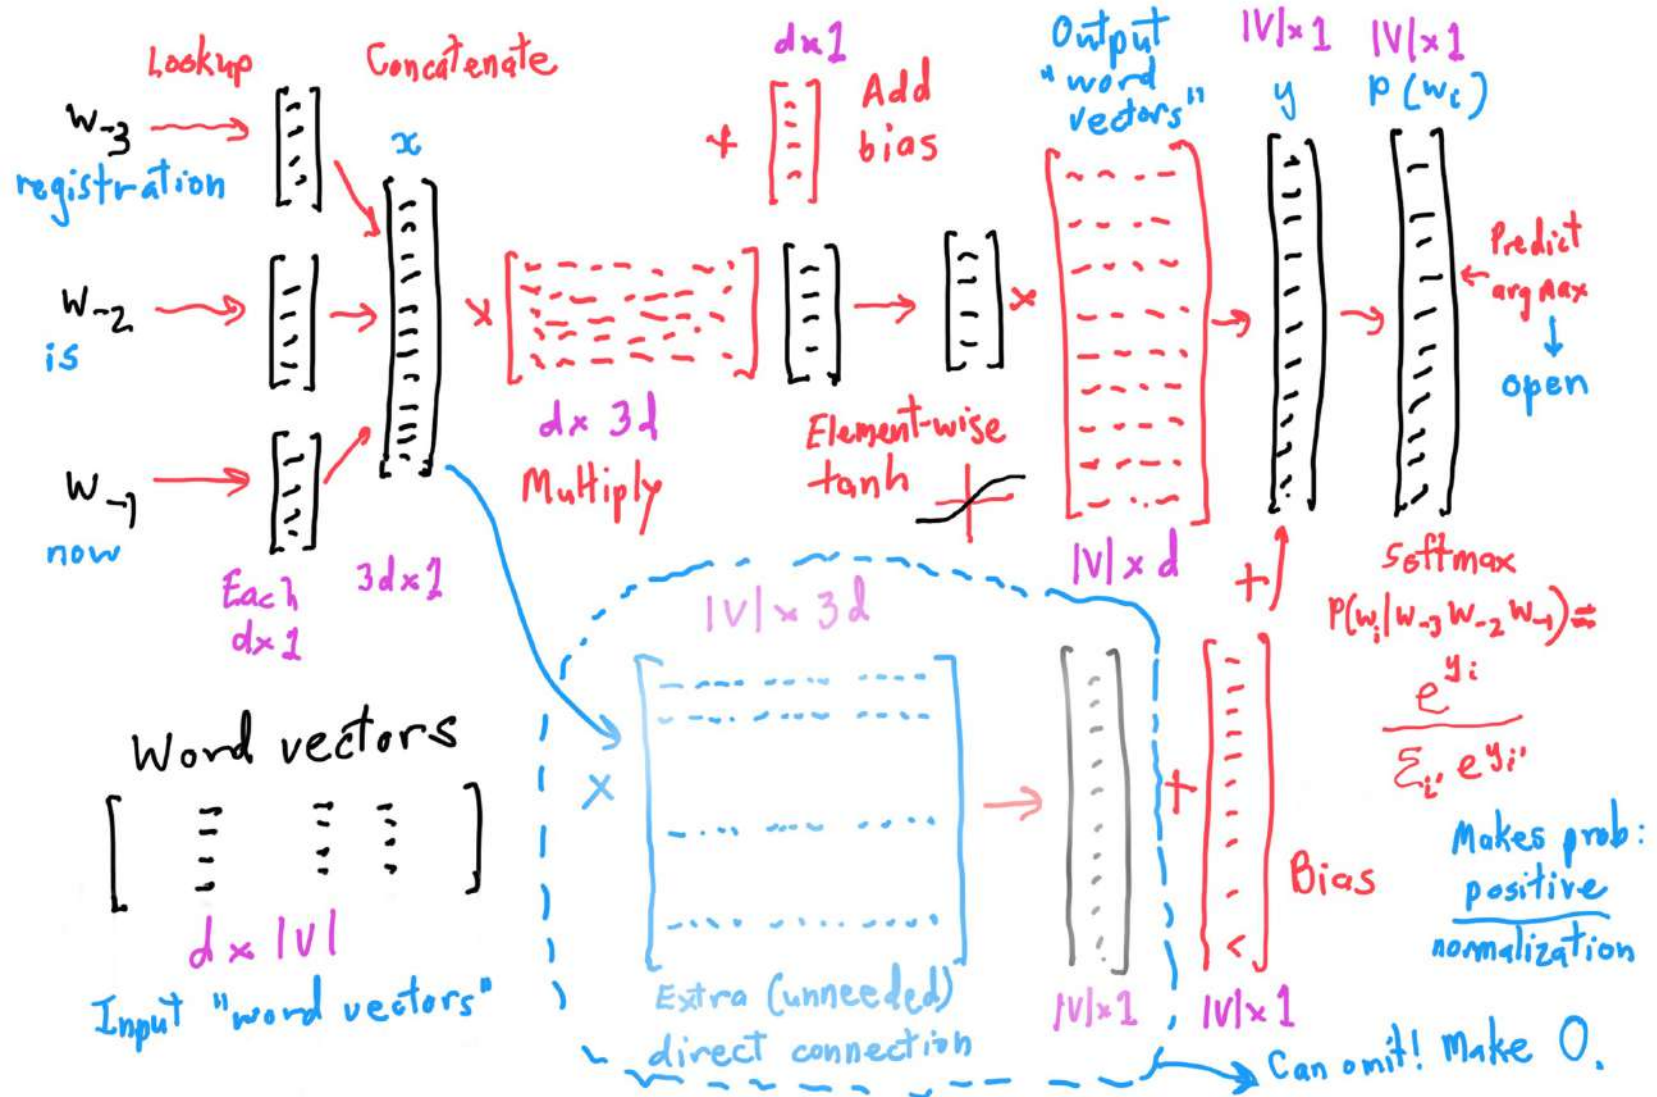 Lookup
Concatenate
w-3
registration
w-2
is
w-1
now
Each
d×1
x
3d×1
×
d× 3d
Multiply
d×1
+
Add
bias
Element-wise
tanh
×
Output
"word
vectors"
|V| × d
|V|×1
y
|V|×1
P(wi)
Predict
argmax
open
Softmax
P(wi|w-3 w-2 w-1)=
e^yi
Σi' e^yi'
Makes prob:
positive
normalization
+
|V| × 3d
×
Extra (unneeded)
direct connection
|V|×1
+
Bias
|V|×1
Can omit! Make 0.
Word vectors
d × |V|
Input "word vectors"